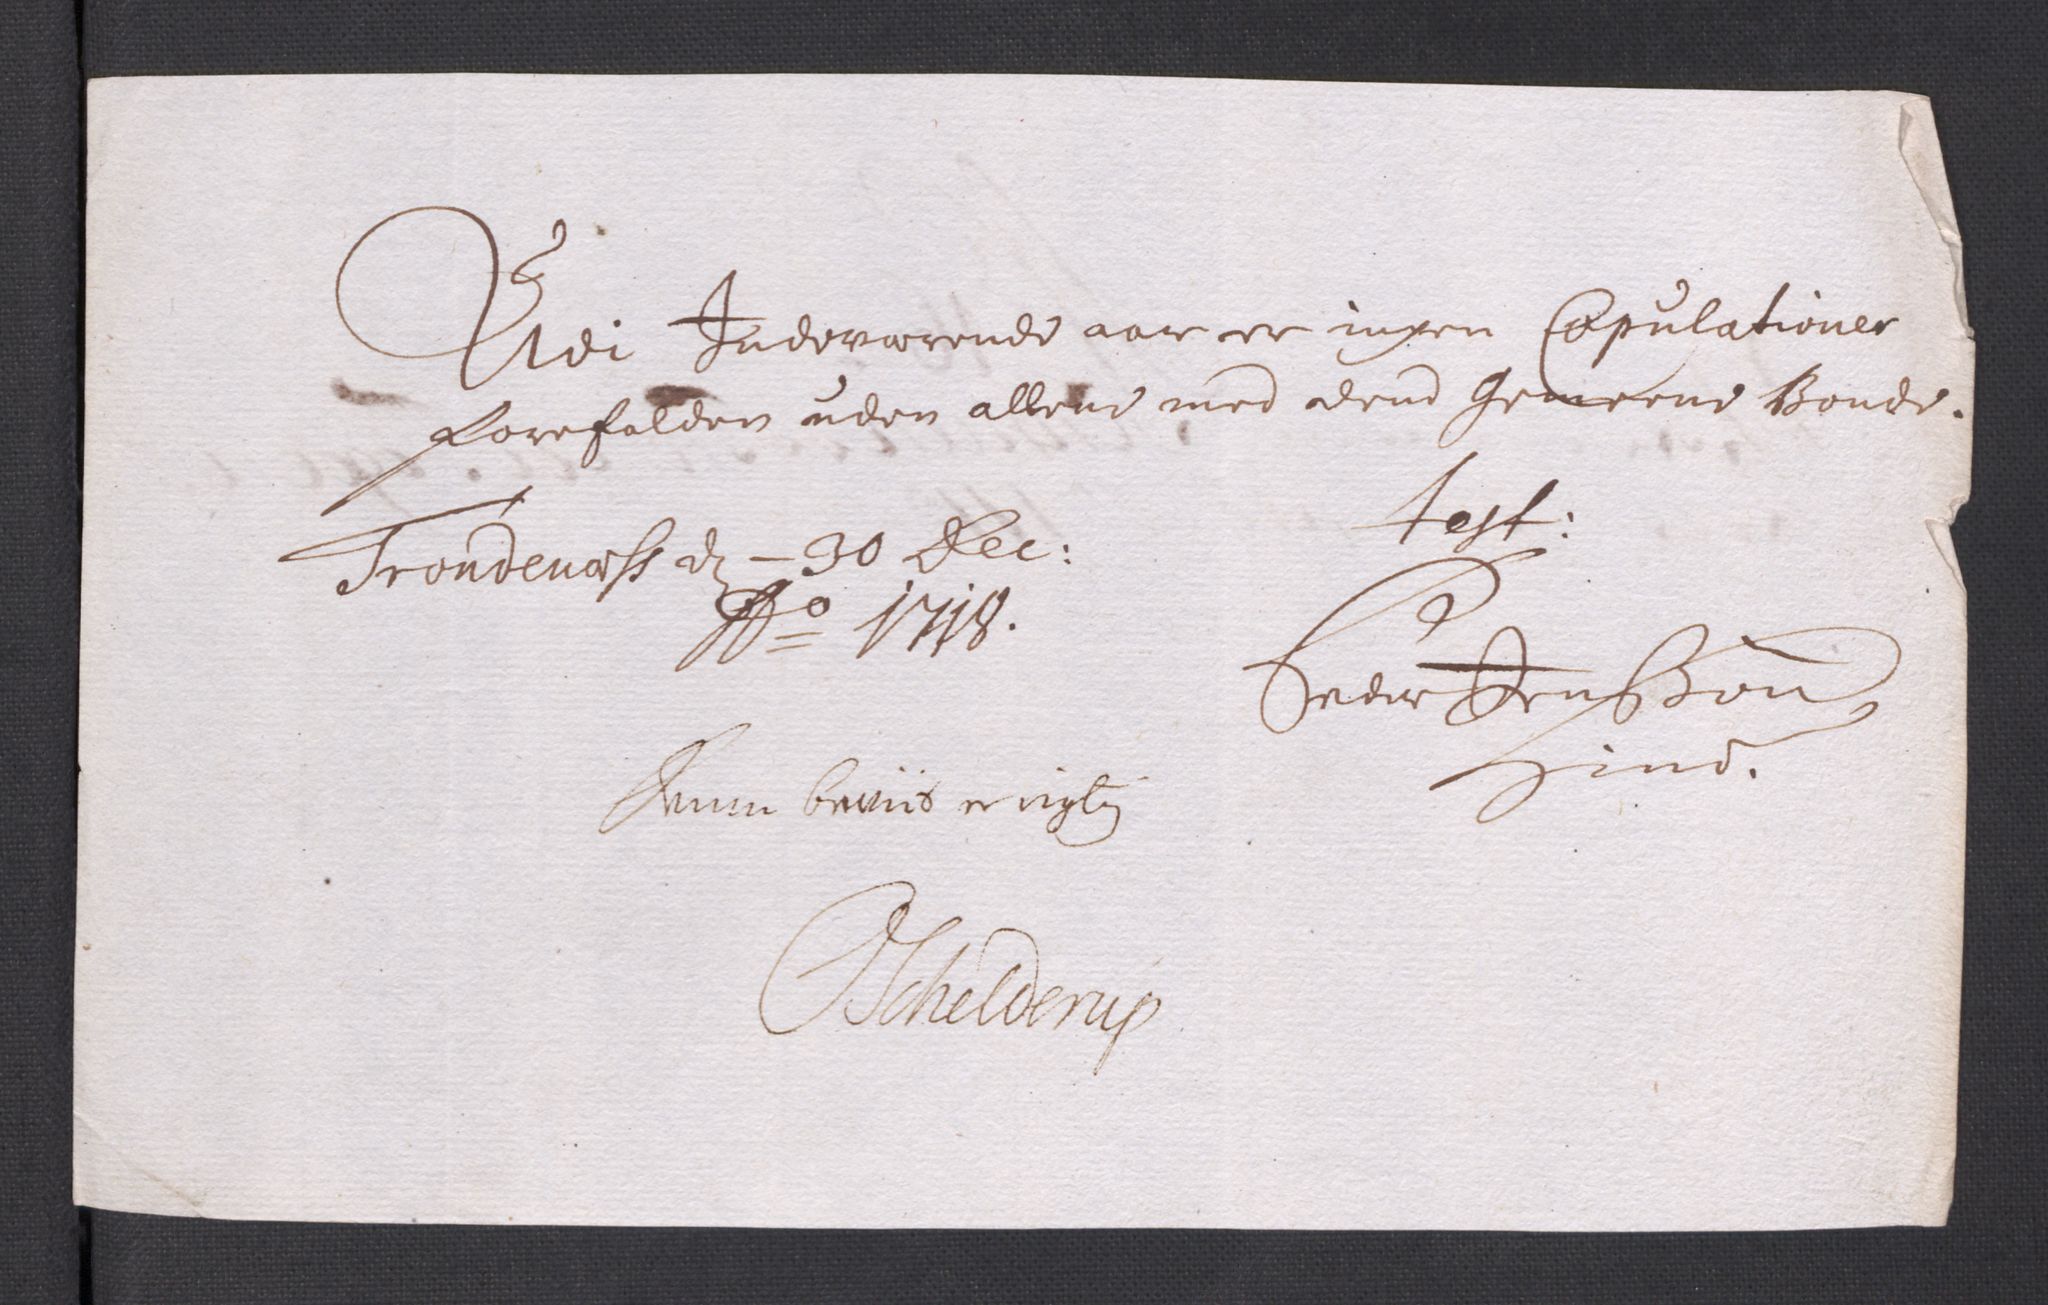 Udi Indeværende aar er ingen Copulationer
forefalden uden allene med dend gemeene Bonde.
Trondenæss d. 30 Dec:
Ao 1718.
test:
Peder Jenssøn
Hind.
bewiis er rigtig
OSchelderup